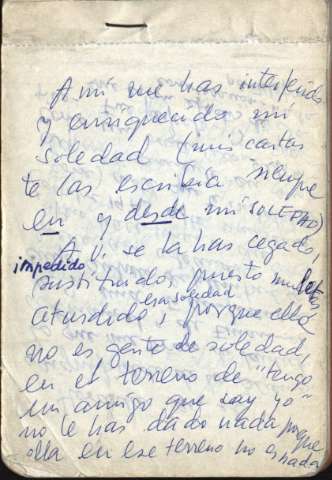 A mí me has interferido
y enriquecido mi
soledad (mis cartas
te las escribía siempre
en y desde mi SOLEDAD)
A V. se la has cegado,
impedido
sustituido, puesto muletas
esa soledad
aturdido, porque ella
no es gente de soledad,
en el terreno de "tengo
un amigo que soy yo"
no le has dado nada porque
ella en ese terreno no es nada